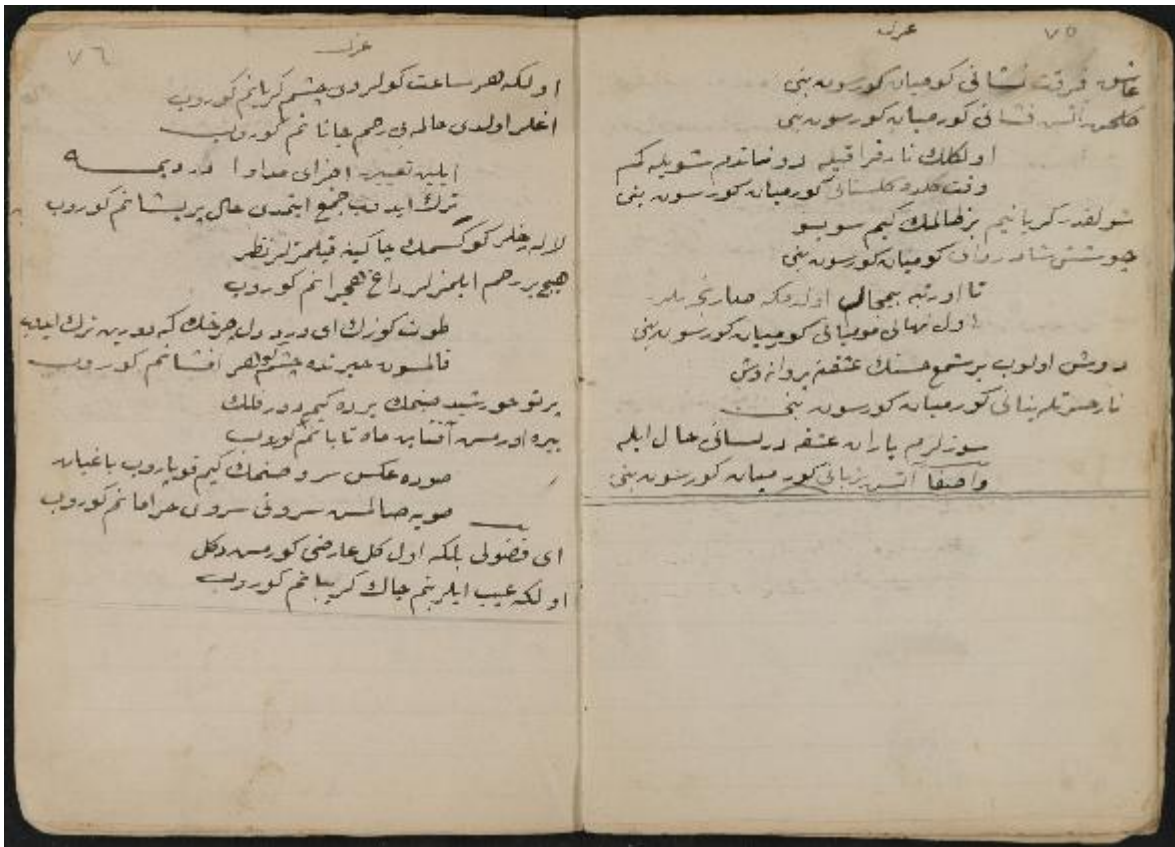 ٧٥
غزل
عاشق فرقت نشانی کورمیان کورسون بنی
آتش فشانی کورمیان کورسون بنی
اولکلك نار فراقیله شویله کم
وقت کلده کلستانی کورمیان کورسون بنی
شولقدر کریانیم بز ظالمك کیم سوبسو
کورمیان کورسون بنی
تا او رتبه بیمجال اولدمکه
اول نهانی کورمیان کورسون بنی
اولوب بر شمع حسنك عشقنه پروانه وش
کورمیان کورسون بنی
سوزلرم یاران عشقه در لسانی حال ایله
واصفا آتش زبانی کورمیان کورسون بنی
٧٦
غزل
اولکه هر ساعت کولردی چشم کریانم کوروب
اغلر اولدی حالمه بی رحم جانانم کوروب
ایلین تعیین اجزای مداوا دردیمه
ترك ایدوب جمع ایتمدی حال پریشانم کوروب
لاله رخلر کوکسمك چاکینه قیلمزلر نظر
هیچ بر رحم ایلمزلر داغ هجرانم کوروب
طوت کوزك ای دود دل چرخك که دورین ترك ایدوب
قالمسون حیرتده چشم کوهر افشانم کوروب
پرتو خورشید صنمك یرده کیم دور فلك
ییره اورمش آفتابن ماه تابانم کوروب
صوده عکس سرو صنمك کیم قوپاروب باغبان
صویه صالمش سروینی سرو خرامانم کوروب
ای فضولی بلکه اول کل عارضی کورمش دکل
اولکه عیب ایلر بنم چاك کریبانم کوروب